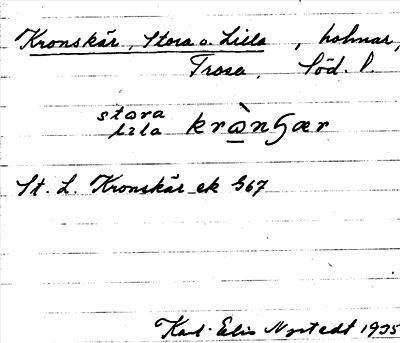 Kronskär, Stora o. Lilla, holmar,
Trosa, Söd. l.
stora
lɩla krò̱nʃ̢ær
St. L. Kronskär ek 567
Karl-Elis Nystedt 1935